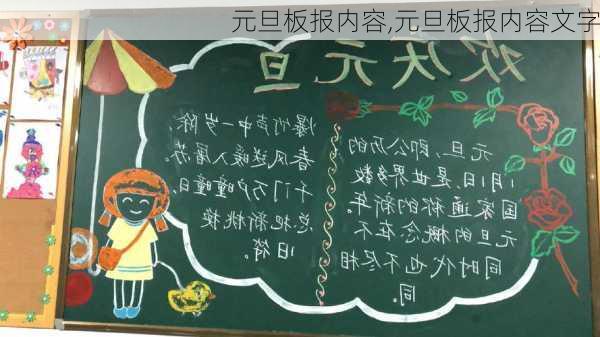 元旦板报内容,元旦板报内容文字
欢庆元旦
爆竹声中一岁除,
春风送暖入屠苏。
千门万户曈曈日,
总把新桃换
旧符。
元旦,即公历的
1月1日,是世界多数
国家通称的新年。
元旦的概念在不
同时代也不尽相
同。